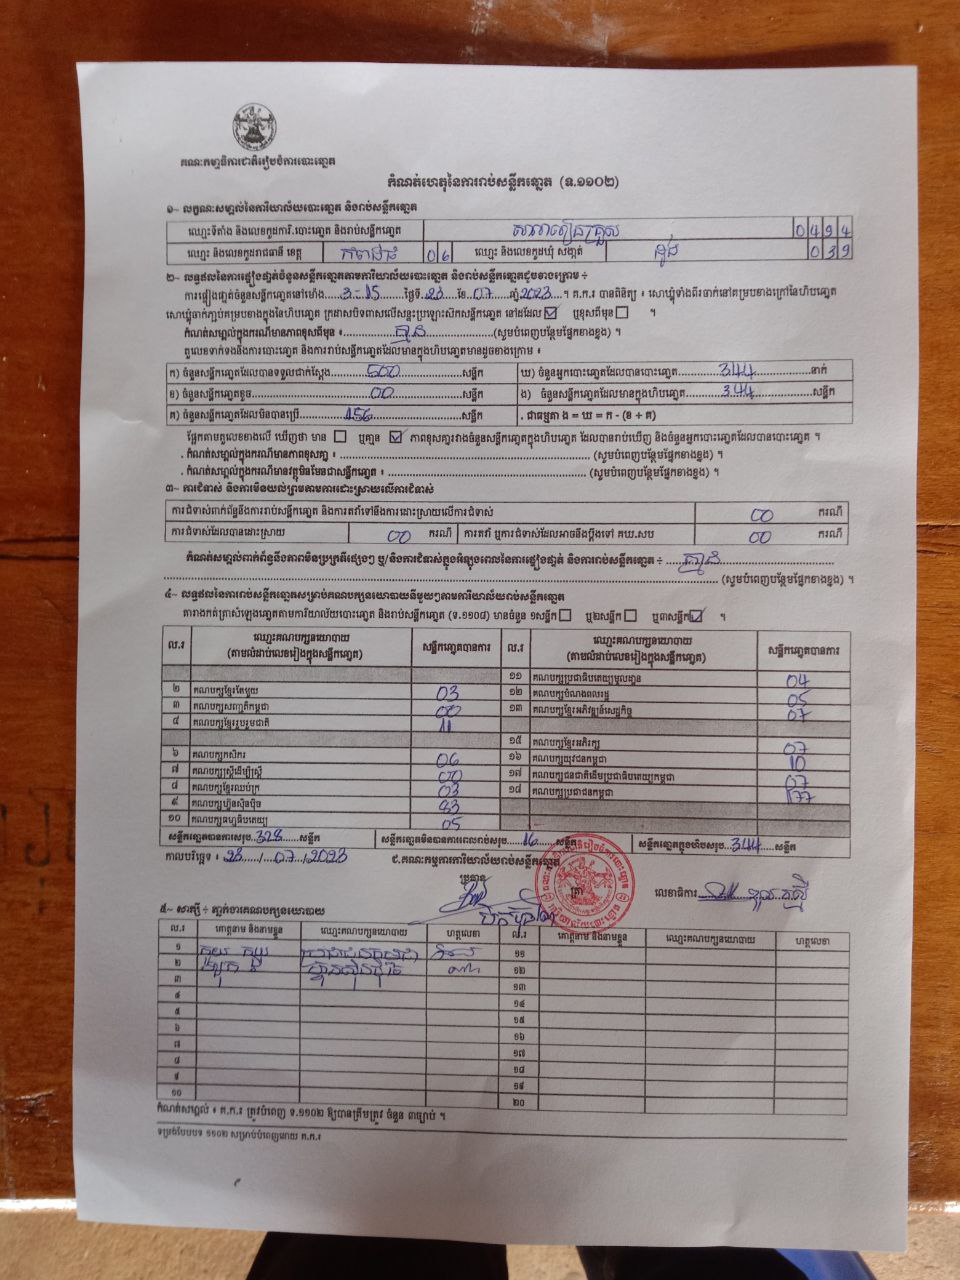 គណៈកម្មាធិការជាតិរៀបចំការបោះឆ្នោត
កំណត់ហេតុនៃការរាប់សន្លឹកឆ្នោត (ទ.១១០២)
១~ លក្ខណៈសម្គាល់នៃការិយាល័យបោះឆ្នោត និងរាប់សន្លឹកឆ្នោត
ឈ្មោះទីតាំង និងលេខកូដការិ.បោះឆ្នោត និងរាប់សន្លឹកឆ្នោត 0494
ឈ្មោះ និងលេខកូដរាជធានី ខេត្ត កំពង់ធំ 06 ឈ្មោះ និងលេខកូដឃុំ សង្កាត់ ដូង 039
២~ លទ្ធផលនៃការផ្ទៀងផ្ទាត់ចំនួនសន្លឹកឆ្នោតតាមការិយាល័យបោះឆ្នោត និងរាប់សន្លឹកឆ្នោតដូចខាងក្រោម ÷
ការផ្ទៀងផ្ទាត់ចំនួនសន្លឹកឆ្នោតនៅម៉ោង 3-15 ថ្ងៃទី 23 ខែ 07 ឆ្នាំ 2023 ។ គ.ក.រ បានពិនិត្យ ៖ សោឃ្លុំទាំងពីរចាក់នៅគម្របខាងក្រៅនៃហិបឆ្នោត
សោឃ្លុំចាក់ភ្ជាប់គម្របខាងក្នុងនៃហិបឆ្នោត ក្រដាសបិទពាសលើសន្ទះប្រឡោះស៊កសន្លឹកឆ្នោត នៅដដែល ☑ ឬខុសពីមុន ☐ ។
កំណត់សម្គាល់ក្នុងករណីមានភាពខុសពីមុន ៖ គ្មាន (សូមបំពេញបន្ថែមផ្នែកខាងខ្នង) ។
តួលេខទាក់ទងនឹងការបោះឆ្នោត និងការរាប់សន្លឹកឆ្នោតដែលមានក្នុងហិបឆ្នោតមានដូចខាងក្រោម ៖
ក) ចំនួនសន្លឹកឆ្នោតដែលបានទទួលជាក់ស្តែង 500 សន្លឹក ឃ) ចំនួនអ្នកបោះឆ្នោតដែលបានបោះឆ្នោត 344 នាក់
ខ) ចំនួនសន្លឹកឆ្នោតខូច 00 សន្លឹក ង) ចំនួនសន្លឹកឆ្នោតដែលមានក្នុងហិបឆ្នោត 344 សន្លឹក
គ) ចំនួនសន្លឹកឆ្នោតដែលមិនបានប្រើ 156 សន្លឹក . ជាធម្មតា ង = ឃ = ក - (ខ + គ)
ផ្អែកតាមតួលេខខាងលើ ឃើញថា មាន ☐ ឬគ្មាន ☑ ភាពខុសគ្នារវាងចំនួនសន្លឹកឆ្នោតក្នុងហិបឆ្នោត ដែលបានរាប់ឃើញ និងចំនួនអ្នកបោះឆ្នោតដែលបានបោះឆ្នោត ។
. កំណត់សម្គាល់ក្នុងករណីមានភាពខុសគ្នា ៖ (សូមបំពេញបន្ថែមផ្នែកខាងខ្នង) ។
. កំណត់សម្គាល់ក្នុងករណីមានវត្ថុមិនមែនជាសន្លឹកឆ្នោត ៖ (សូមបំពេញបន្ថែមផ្នែកខាងខ្នង) ។
៣~ ការជំទាស់ និងការមិនយល់ព្រមតាមការដោះស្រាយលើការជំទាស់
ការជំទាស់ពាក់ព័ន្ធនឹងការរាប់សន្លឹកឆ្នោត និងការតវ៉ាទៅនឹងការដោះស្រាយលើការជំទាស់ 00 ករណី
ការជំទាស់ដែលបានដោះស្រាយ 00 ករណី ការតវ៉ា ឬការជំទាស់ដែលអាចនឹងប្តឹងទៅ គឃ.សប 00 ករណី
កំណត់សម្គាល់ពាក់ព័ន្ធនឹងភាពមិនប្រក្រតីផ្សេងៗ ឬ/និងការជំទាស់ក្នុងអំឡុងពេលនៃការផ្ទៀងផ្ទាត់ និងការរាប់សន្លឹកឆ្នោត ÷ គ្មាន
(សូមបំពេញបន្ថែមផ្នែកខាងខ្នង) ។
៤~ លទ្ធផលនៃការរាប់សន្លឹកឆ្នោតសម្រាប់គណបក្សនយោបាយនីមួយៗតាមការិយាល័យរាប់សន្លឹកឆ្នោត
តារាងកត់ត្រាសំឡេងឆ្នោតតាមការិយាល័យបោះឆ្នោត និងរាប់សន្លឹកឆ្នោត (ទ.១១០៨) មានចំនួន ១សន្លឹក ☐ ឬ២សន្លឹក ☐ ឬ៣សន្លឹក ☑ ។
ល.រ ឈ្មោះគណបក្សនយោបាយ (តាមលំដាប់លេខរៀងក្នុងសន្លឹកឆ្នោត) សន្លឹកឆ្នោតបានការ ល.រ ឈ្មោះគណបក្សនយោបាយ (តាមលំដាប់លេខរៀងក្នុងសន្លឹកឆ្នោត) សន្លឹកឆ្នោតបានការ
១១ គណបក្សប្រជាធិបតេយ្យមូលដ្ឋាន 04
២ គណបក្សខ្មែរតែមួយ 03 ១២ គណបក្សបំណងពលរដ្ឋ 05
៣ គណបក្សសញ្ជាតិកម្ពុជា 00 ១៣ គណបក្សខ្មែរអភិវឌ្ឍន៍សេដ្ឋកិច្ច 07
៤ គណបក្សខ្មែររួបរួមជាតិ 11
១៥ គណបក្សខ្មែរអភិរក្ស 07
៦ គណបក្សកសិករ 06 ១៦ គណបក្សយុវជនកម្ពុជា 10
៧ គណបក្សស្ត្រីដើម្បីស្ត្រី 00 ១៧ គណបក្សជនជាតិដើមប្រជាធិបតេយ្យកម្ពុជា 07
៨ គណបក្សខ្មែរឈប់ក្រ 03 ១៨ គណបក្សប្រជាជនកម្ពុជា 177
៩ គណបក្សហ៊្វុនស៊ិនប៉ិច 83
១០ គណបក្សធម្មាធិបតេយ្យ 05
សន្លឹកឆ្នោតបានការសរុប 328 សន្លឹក សន្លឹកឆ្នោតមិនបានការពេលរាប់សរុប 16 សន្លឹក សន្លឹកឆ្នោតក្នុងហិបសរុប 344 សន្លឹក
កាលបរិច្ឆេទ ៖ 23/07/2023 ជ.គណៈកម្មការការិយាល័យរាប់សន្លឹកឆ្នោត
ប្រធាន ត្រា លេខាធិការ
៥~ សាក្សី ÷ ភ្នាក់ងារគណបក្សនយោបាយ
ល.រ គោត្តនាម និងនាមខ្លួន ឈ្មោះគណបក្សនយោបាយ ហត្ថលេខា ល.រ គោត្តនាម និងនាមខ្លួន ឈ្មោះគណបក្សនយោបាយ ហត្ថលេខា
១ ប្រជាជនកម្ពុជា ១១
២ ហ៊្វុនស៊ិនប៉ិច ១២
៣ ១៣
៤ ១៤
៥ ១៥
៦ ១៦
៧ ១៧
៨ ១៨
៩ ១៩
១០ ២០
កំណត់សម្គាល់ ៖ គ.ក.រ ត្រូវបំពេញ ទ.១១០២ ឱ្យបានត្រឹមត្រូវ ចំនួន ៣ច្បាប់ ។
ទម្រង់បែបបទ ១១០២ សម្រាប់បំពេញដោយ គ.ក.រ